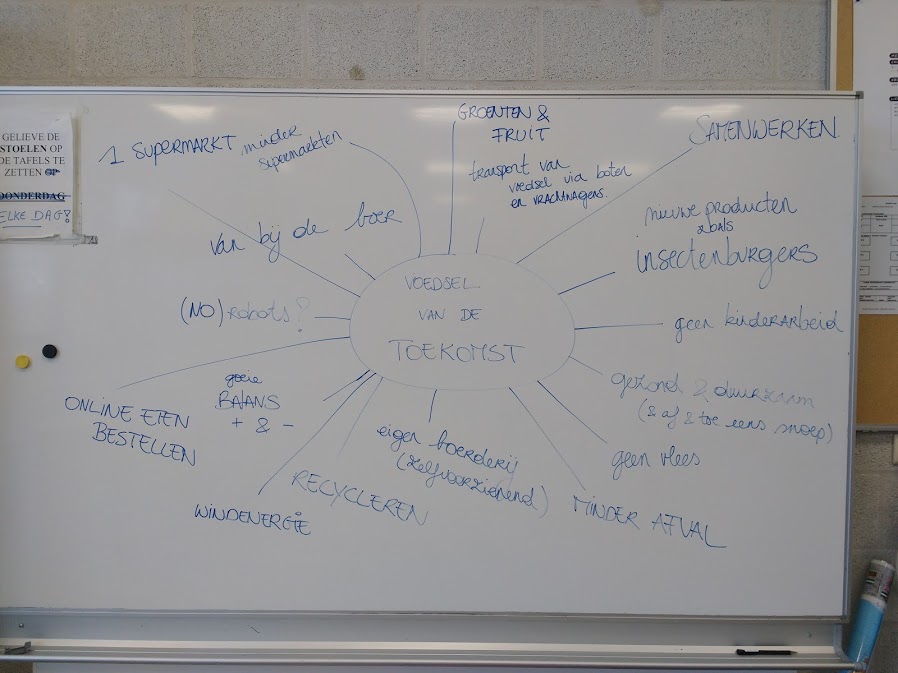 GELIEVE DE
STOELEN OP
DE TAFELS TE
ZETTEN OP
DONDERDAG
ELKE DAG!
1 SUPERMARKT minder
supermarkten
GROENTEN &
FRUIT
transport van
voedsel via boten
en VRACHTWAGENS.
SAMENWERKEN
nieuwe producten
zoals
insectenburgers
van bij de boer
VOEDSEL
VAN DE
TOEKOMST
(NO) robots?
geen kinderarbeid
gezond & duurzaam
(& af & toe eens snoep)
goeie
BALANS
+ & -
ONLINE ETEN
BESTELLEN
eigen boerderij
(zelfvoorzienend)
geen vlees
RECYCLEREN
WINDENERGIE
MINDER AFVAL